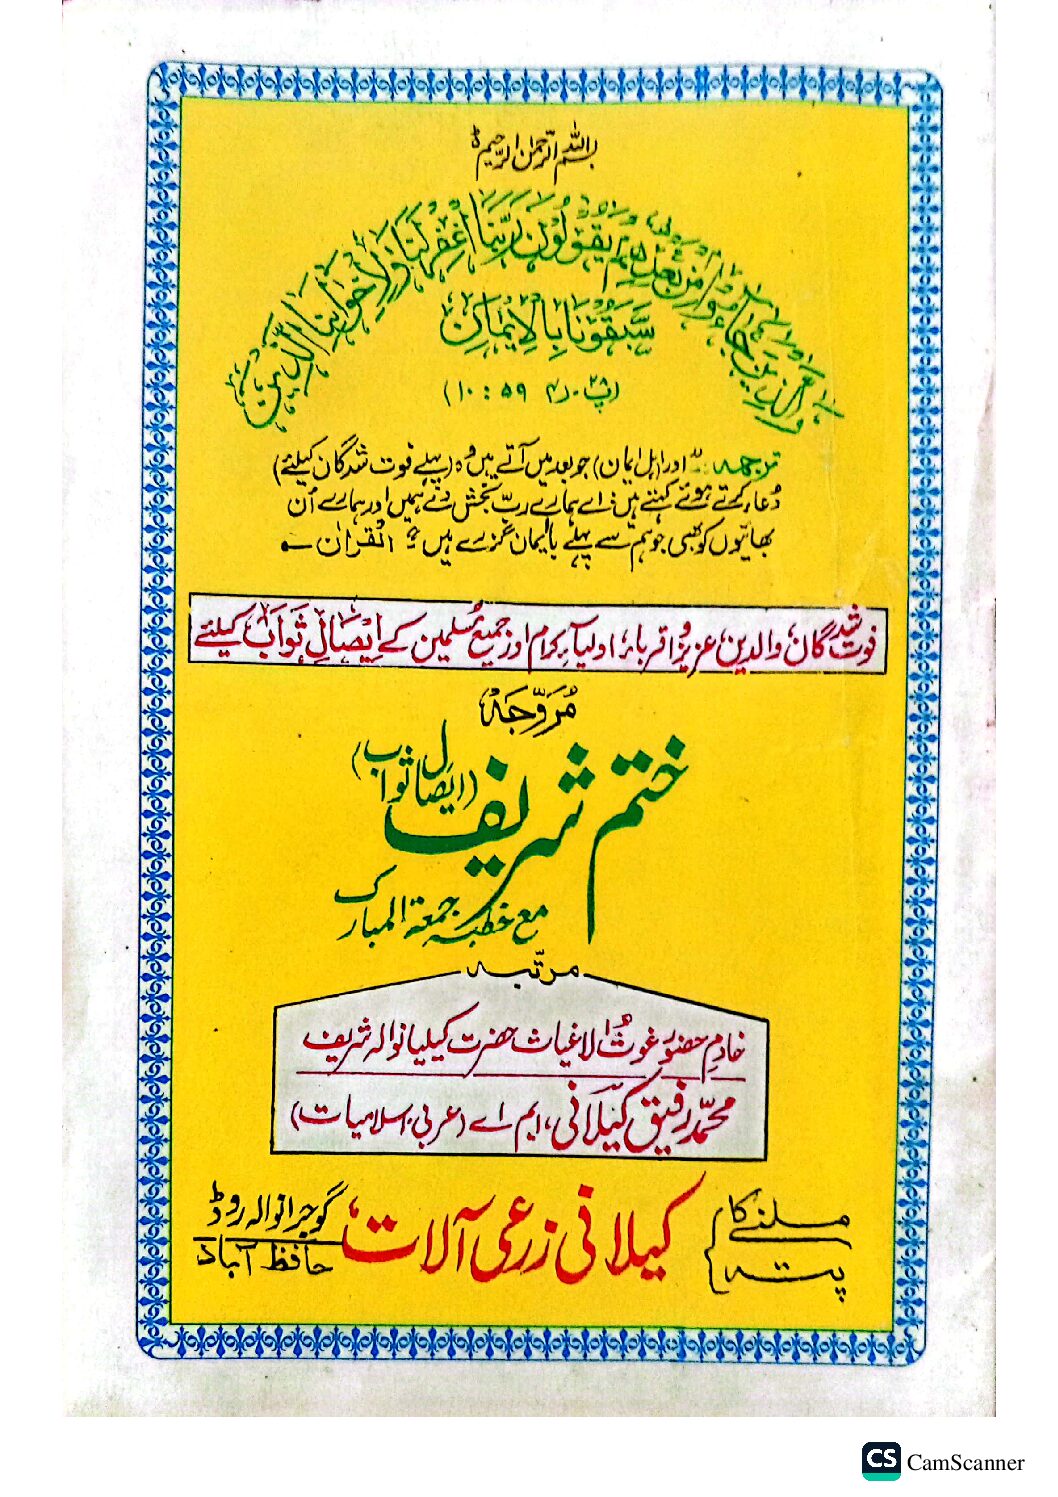 بسم اللہ الرحمٰن الرحیم ؕ
وَالَّذِیْنَ جَآءُوْا مِنْۢ بَعْدِهِمْ یَقُوْلُوْنَ رَبَّنَا اغْفِرْ لَنَا وَلِاِخْوَانِنَا الَّذِیْنَ
سَبَقُوْنَا بِالْاِیْمَانِ
(پ ۲۸ ر ۴ ۵۹ : ۱۰)
ترجمہ: "اور (اہل ایمان) جو بعد میں آتے ہیں وہ (پہلے فوت شدگان کیلئے)
دُعا کرتے ہوئے کہتے ہیں: اے ہمارے ربّ بخش دے ہمیں اور ہمارے اُن
بھائیوں کو بھی جو ہم سے پہلے باایمان گزرے ہیں" القرآن
فوت شدگان، والدین، عزیز و اقرباء، اولیاءِ کرام اور جمیع مُسلمین کے اِیصالِ ثَواب کیلئے
مُرَوَّجَہ
ختم شریف (ایصال ثواب)
مع خطبہ جمعۃ المبارک
مرتّبہ
خادم حضور غوث الاغیاث حضرت کیلیانوالہ شریف
محمّد رفیق کیلانی، ایم اے (عربی، اسلامیات)
ملنے کا پتہ
کیلانی زرعی آلات، گوجرانوالہ روڈ
حافظ آباد
CS CamScanner